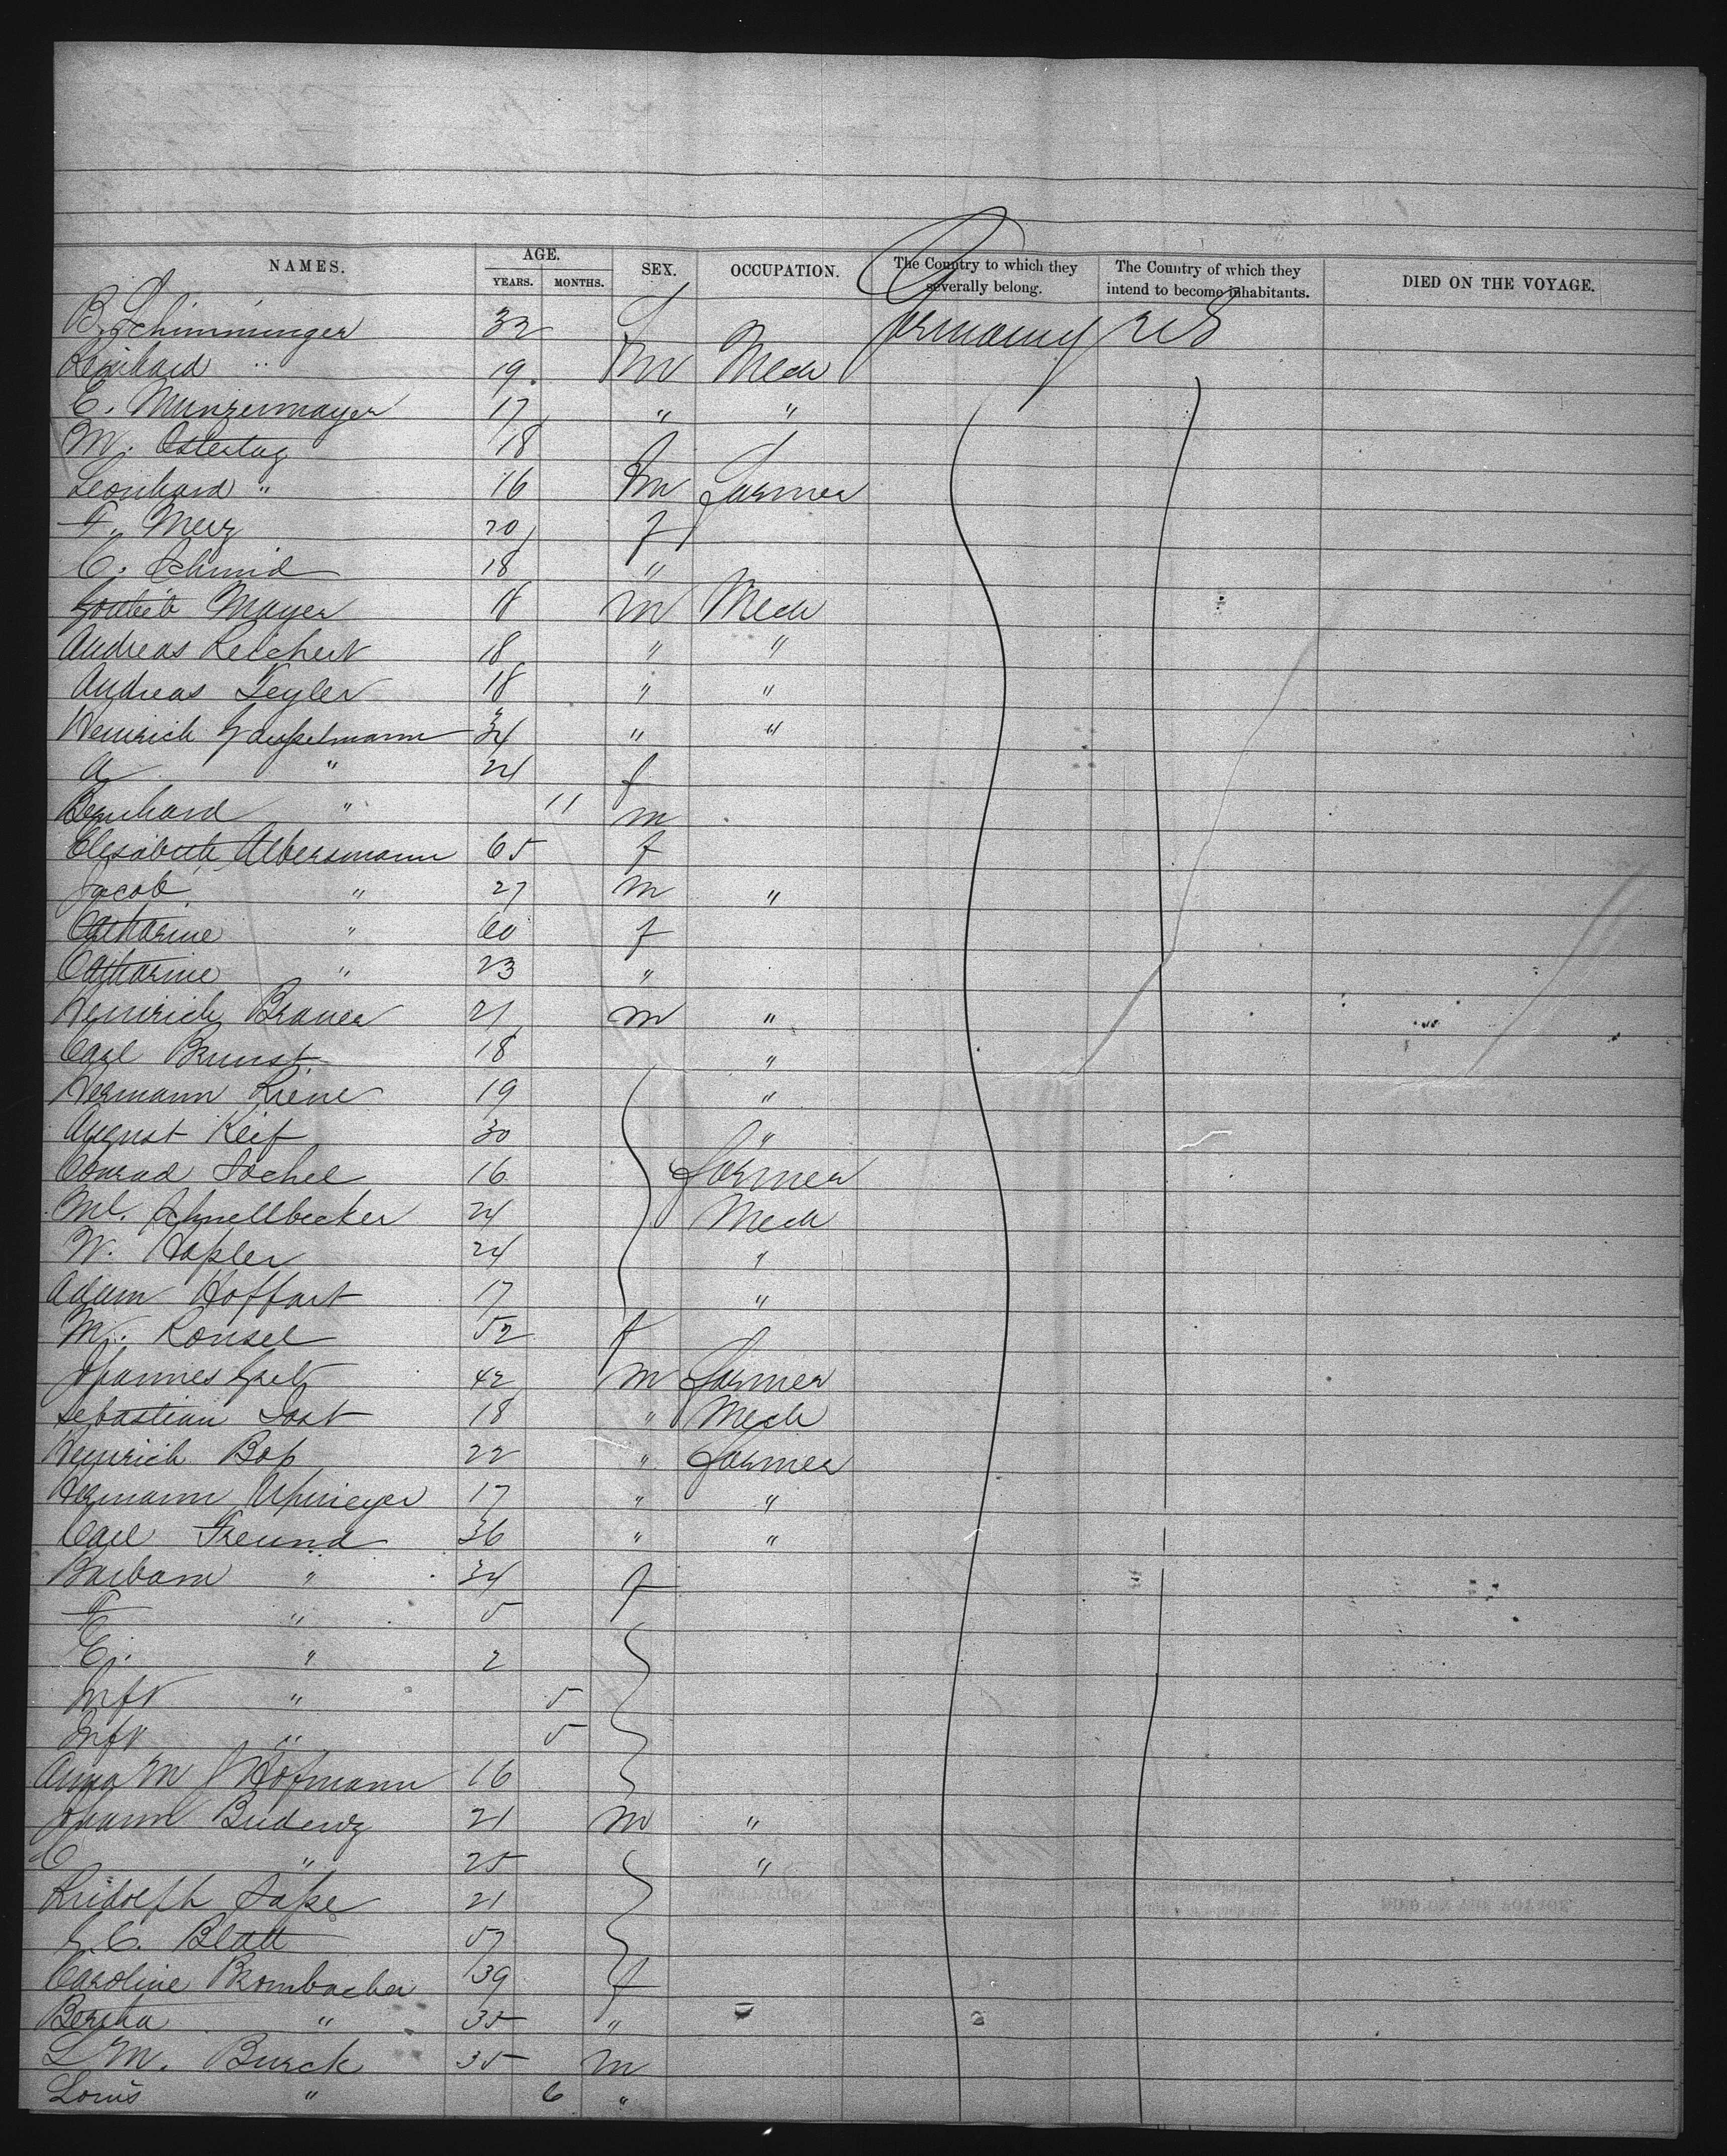 NAMES. AGE. YEARS. MONTHS. SEX. OCCUPATION. The Country to which they severally belong. The Country of which they intend to become inhabitants. DIED ON THE VOYAGE.
B. Schimminger 32 f Germany U S
Reinhard " 19 m Mech
C. Munzenmayer 17 " "
M. Ostertag 18 f
Leonhard " 16 m Farmer
F. Merz 20 f
C. Schmid 18 "
Gottlieb Mayer 18 m Mech
Andreas Reichert 18 " "
Andreas Segler 18 " "
Heinrich 34 " "
A " 24 f
Bernhard " 11 m
Elisabeth Albersmann 65 f
Jacob " 27 m "
Catharine " 60 f
Catharine " 23 "
Heinrich Brauer 21 m "
Carl Brunst 18 "
Hermann Kiene 19 "
August Reif 30 "
Conrad Sochel 16 Farmer
Ml. Schnellbecker 24 Mech
W. Hafsler 24 "
Adam Hoffart 17 "
M. Konsel 52 f
Johannes 42 m Farmer
Sebastian Jost 18 " Mech
Heinrich Bop 22 " Farmer
Hermann Upmeyer 17 " "
Carl Freund 36 " "
Barbara " 34 f
F " 5
C. " 2
Inft " 5
Inft " 5
Anna M Hofmann 16
Johann Budewz 21 m "
C " 25 "
Rudolph Safse 21
G. C. Blatt 57
Caroline Brombacher 39 f
Bertha " 35 "
L M. Burck 35 m
Louis " 6 "